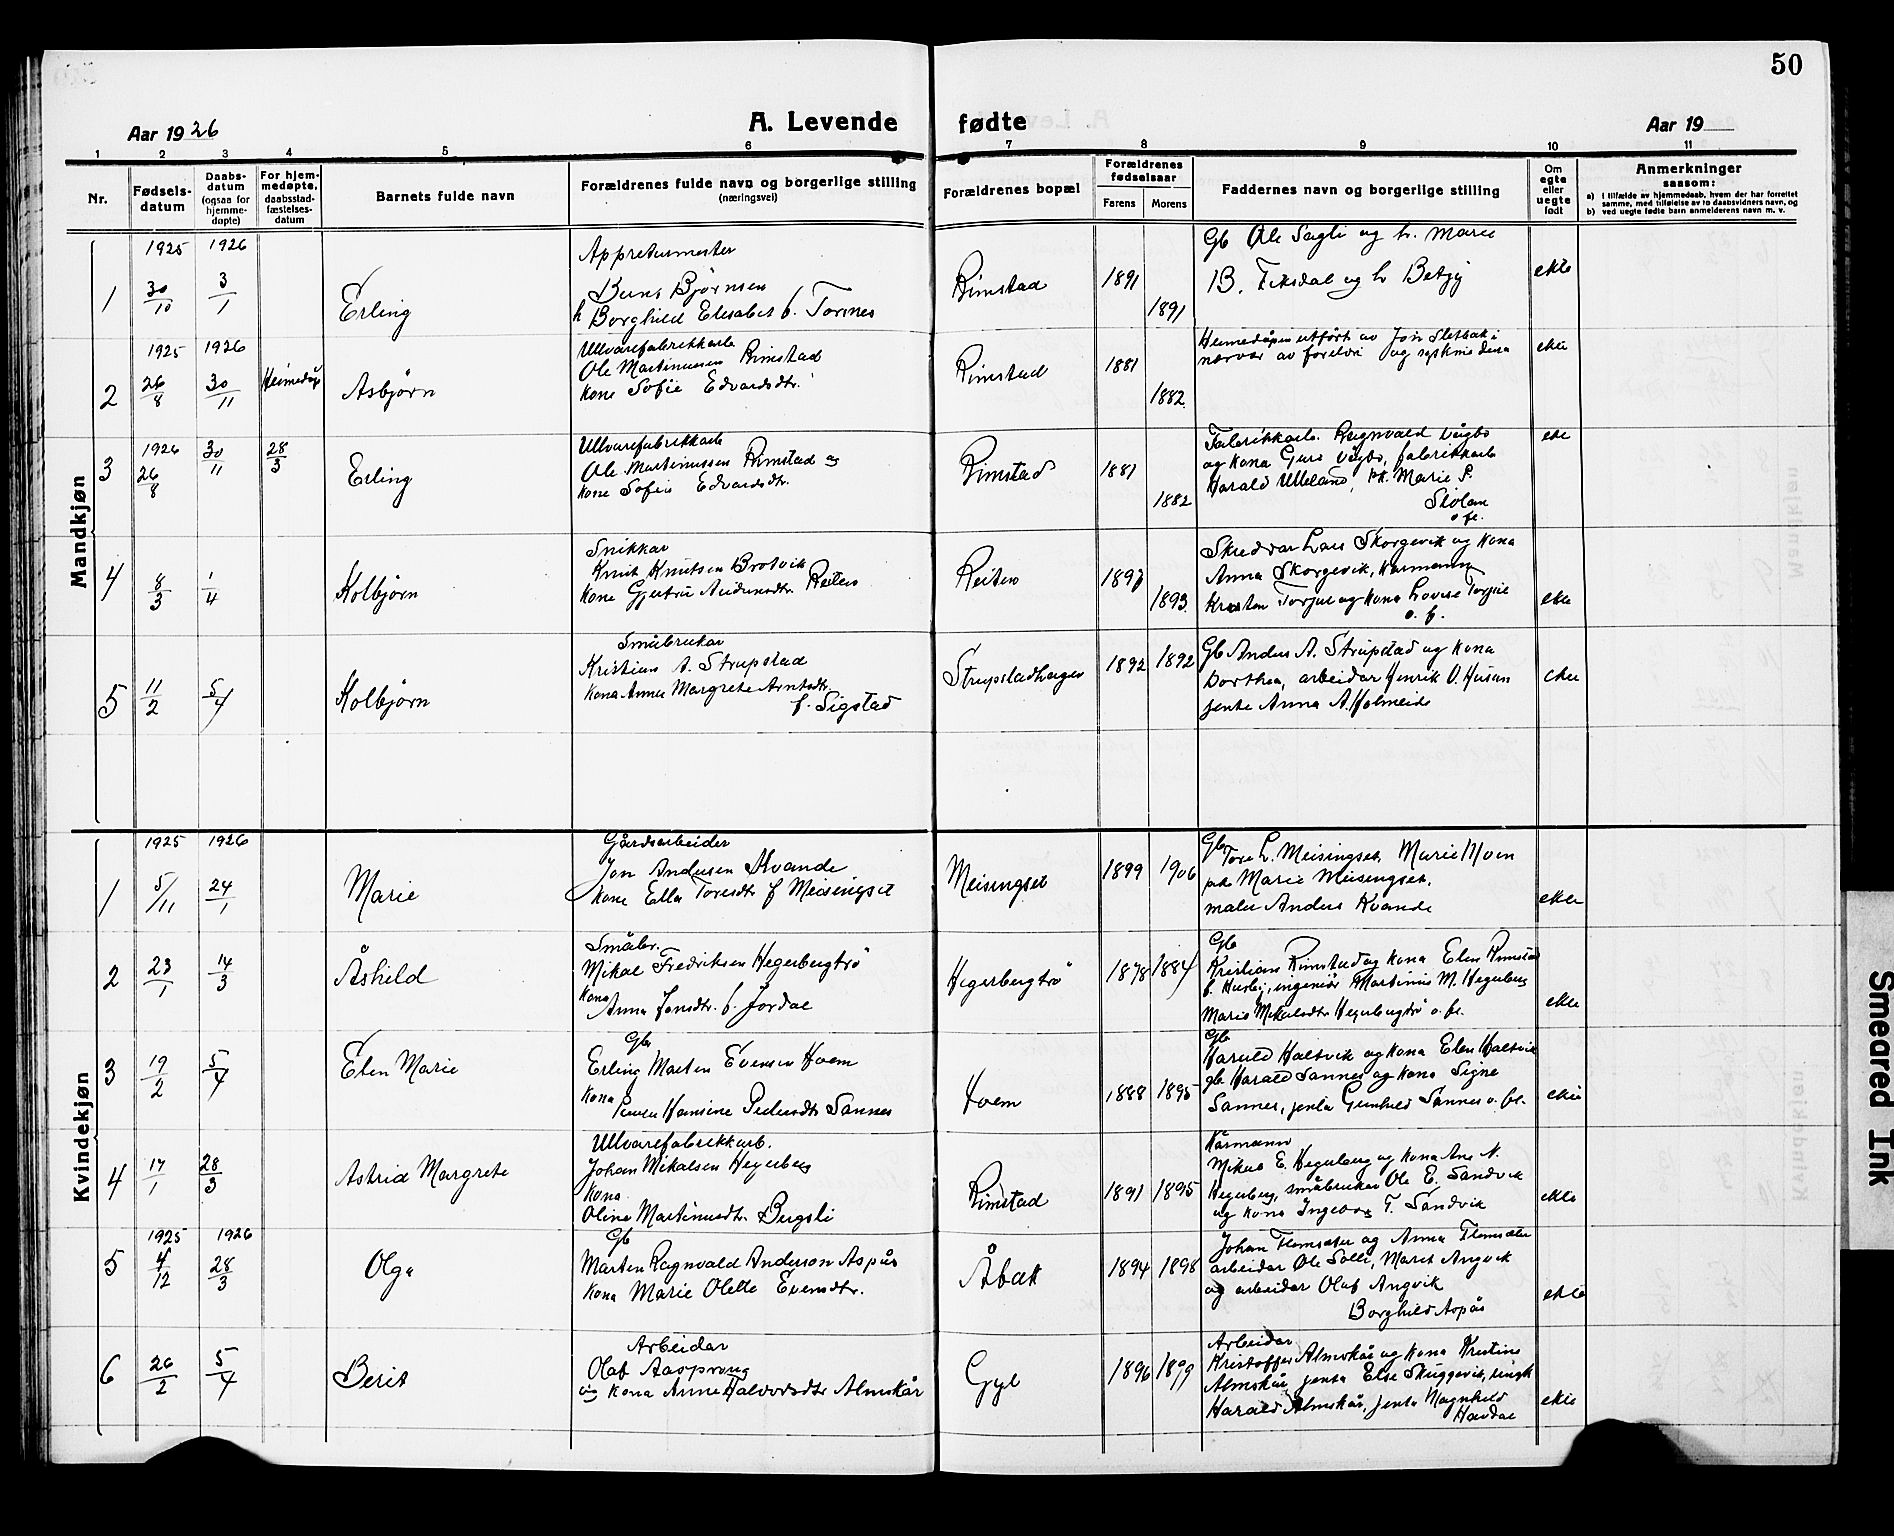 50
Aar 1926
A. Levende fødte
Aar 19
1 2 3 4 5 6 7 8 9 10 11
Nr.
Fødsels-
datum
Daabs-
datum
(ogsaa for
hjemme-
døpte)
For hjem-
medøpte,
daabsstad-
fæstelses-
datum
Barnets fulde navn
Forældrenes fulde navn og borgerlige stilling
(næringsvei)
Forældrenes bopæl
Forældrenes
fødselsaar
Farens Morens
Faddernes navn og borgerlige stilling
Om
egte
eller
uegte
født
Anmerkninger
saasom:
a) i tilfælde av hjemmedaab, hvem der har forrettet
samme, med tilføielse av to daabsvidners navn, og
b) ved uegte fødte barn anmelderens navn m. v.
Mandkjøn
1925 1926
1 30/10 3/1 Erling
Appreturmester
Bjørnsen
h Borghild Elisabet f. Tornes
Rimstad 1891 1891
Gb Ole Sagli og h. Marie
B. Fiksdal og h Betzy
ekte
1925 1926
2 26/8 30/11 Heimedåp Asbjørn
Ullvarefabrikkarb
Ole Martinussen Rimstad
kone Sofie Edvardsdtr.
Rimstad 1881 1882
Heimedåpen utført av Jon Sletbak i
nærvær av foreldri og syskina dera
ekte
1926
3 26/8 30/11 28/3 Erling
Ullvarefabrikkarb
Ole Martinussen Rimstad og
kone Sofie Edvardsdtr.
Rimstad 1881 1882
Fabrikkarb. Ragnvald Vågbø
og kona Guro Vågbø, fabrikkarb
Harald Ulleland, Marie P.
Stolan
o fl.
ekte
4 8/3 1/4 Kolbjørn
Snikkar
Knut Knutsen Brotvik
kone Gjertru Andersdtr Reiten
Reiten 1893
Skreddar Lars Skorgevik og kona
Anna Skorgevik, Kårmann
Kristen Torjul og kona Lovise Torjul
o. fl.
ekte
5 11/2 5/4 Kolbjørn
Småbrukar
Kristian A. Strupstad
kona Anne Margrete Arntsdtr
f. Sigstad
Strupstadhagen 1892 1892
Gb Anders A. Strupstad og kona
Dorthea, arbeidar Henrik O. Husan
jenta Anna A. Holmeide
ekte
Kvindekjøn
1925 1926
1 5/11 24/1 Marie
Gårdsarbeider
Jon Andersen Kvande
kone Ella Toresdtr f Meisingset
Meisingset 1899 1906
Gb Tore L. Meisingset, Marie Moen
pk Marie Meisingset,
maler Anders Kvande
ekte
2 23/1 14/3 Åshild
Småbr.
Mikal Fredriksen Hegerbergtrø
kona
Anna Jonsdtr. f. Jordal
Hegerbergtrø 1878 1884
Gb
Kristian Rimstad og kona Elen Rimstad
f. Husby, ingeniør Martinus M. Hegerberg
Marie Mikalsdtr Hegerbergtrø o. fl.
ekte
3 19/2 5/4 Elen Marie
Gb
Erling Marten Evensen Hoem
kona
Hansine Pedersdtr Sannes
Hoem 1888 1895
Gb
Harald Haltvik og kona Elen Haltvik
gb Harald Sannes og kona Signe
Sannes, jenta Gunhild Sannes o. fl.
ekte
4 17/1 28/3 Astrid Margrete
Ullvarefabrikkarb.
Johan Mikalsen Hegerberg
kona
Oline Martinusdtr. Bergsli
Rimstad 1891 1895
Kårmann
Mikal E. Hegerberg og kona Ane N.
Hegerberg, småbrukar Ole E. Sandvik
og kona Ingeborg T. Sandvik
ekte
1925 1926
5 4/12 28/3 Olga
Gb
Marten Ragnvald Anderson Aspås
kona Marie Olette Evensdtr.
Åbak 1894 1898
Johan Flemsæter og Anna Flemsæter
arbeidar Ole Solli, Marit Angvik
og arbeidar Olaf Angvik
Borghild Aspås
ekte
6 26/2 5/4 Berit
Arbeidar
Olaf Aasprong
og kona Anne Halvorsdtr Almskår
Gyl 1896 1899
Arbeidar
Kristoffer Almskår og kona Kristine
Almskår, jenta Else Skuggevik, ungk
Harald Almskår, jenta Magnhild
Havdal
ekte
Smeared Ink